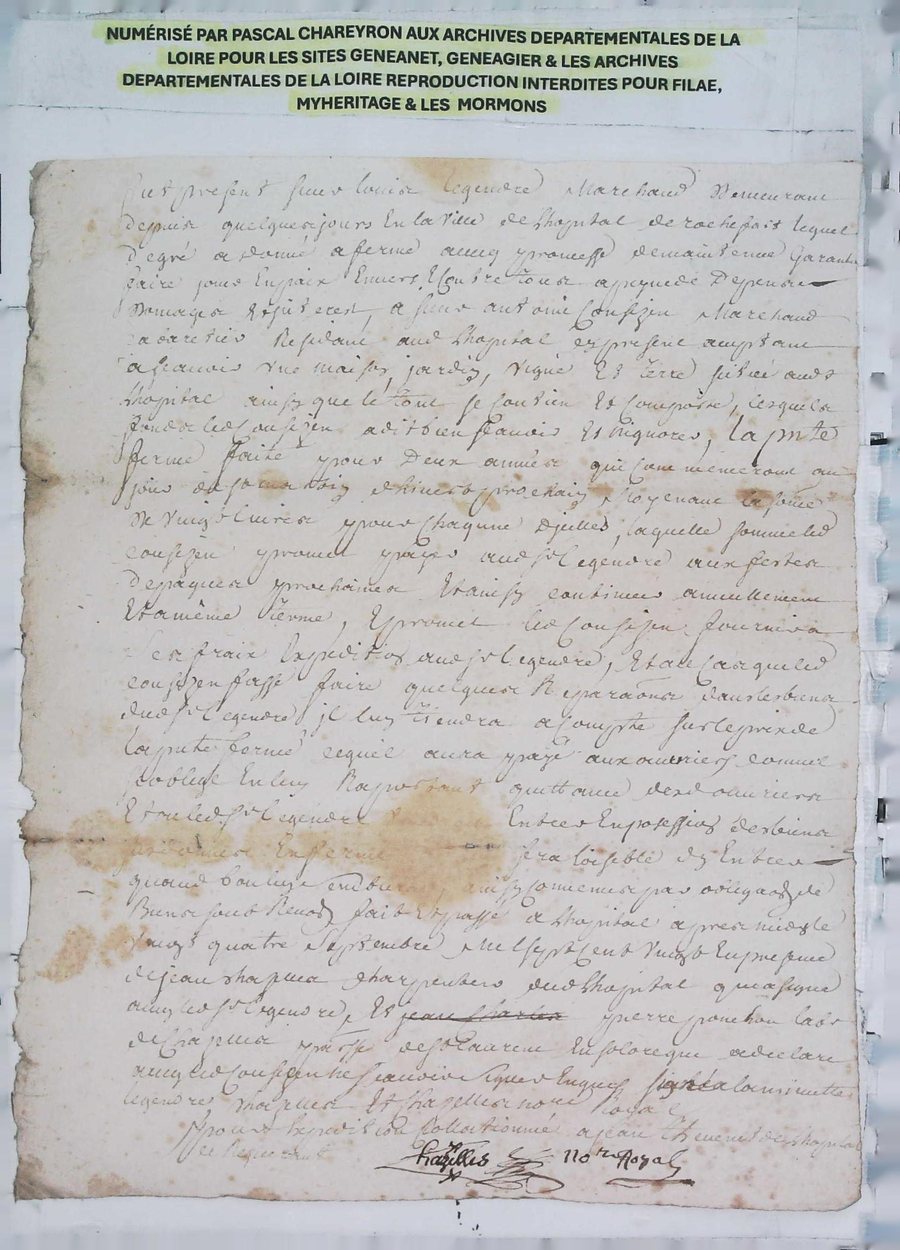 NUMÉRISÉ PAR PASCAL CHAREYRON AUX ARCHIVES DEPARTEMENTALES DE LA
LOIRE POUR LES SITES GENEANET, GENEAGIER & LES ARCHIVES
DEPARTEMENTALES DE LA LOIRE REPRODUCTION INTERDITES POUR FILAE,
MYHERITAGE & LES MORMONS
fut present sieur louis legendre Marchand Demeurant
Depuis quelques jours En la ville de Lhopital de rochefort lequel
De gré a donné a ferme avecq promesse de maintenue Garantie
faire jouir En paix Envers Et Contre tous a peyne de Depens
Domages Et jnterest, a sieur antoine Marchand
Cabaretier Residant aud Lhopital acceptant
a scavoir une maison, jardin, vigne Et Terre situés aud
Lhopital ainsy que le tout se Contien Et Compose, lesquels
fonds a dit bien scavoir Et n'ignorer, la pnte
ferme faite pour Deux années qui Commenceront au
jour de st martin d'hiver prochain Moyenant la somme
De vingt Livres pour Chaqune D'jcelles, laquelle somme led
promet payer aud sr Legendre aux festes
De paques prochaines Et ainsy continuer annuellement
Et a même Terme, Et promet led fournir a
ses frais Expedition aud sr Legendre, Et au Cas que led
fasse faire quelques Reparaons dans les biens
dud sr Legendre jl luy Tiendra a Compte sur le prix de
la pnte ferme lequel aura payé aux ouvriers comme
s'oblige En luy Raportant quittance desd ouvriers
Et led sr Legendre Entrer En possession des biens
En ferme sera loisible d'y Entrer
quand bon luy semblera, ainsy Convenu par obligaon de
Biens fait Et passé a Lhopital apres midy le
vingt quatre Septembre Mil sept Cent vingt En presence
de jean Charpentier dud Lhopital qui a signé
avecq led sr Legendre, Et pierre ponchon labr
de Chazelles psse de st Laurent En soloregue a declaré
avecq led ne scavoir signer Enquis signés a la minutte
legendre Et Chazelles nore Royal
pour Expedition Collationnée a jean Thevenet de Lhopital

Chazelles nore Royal